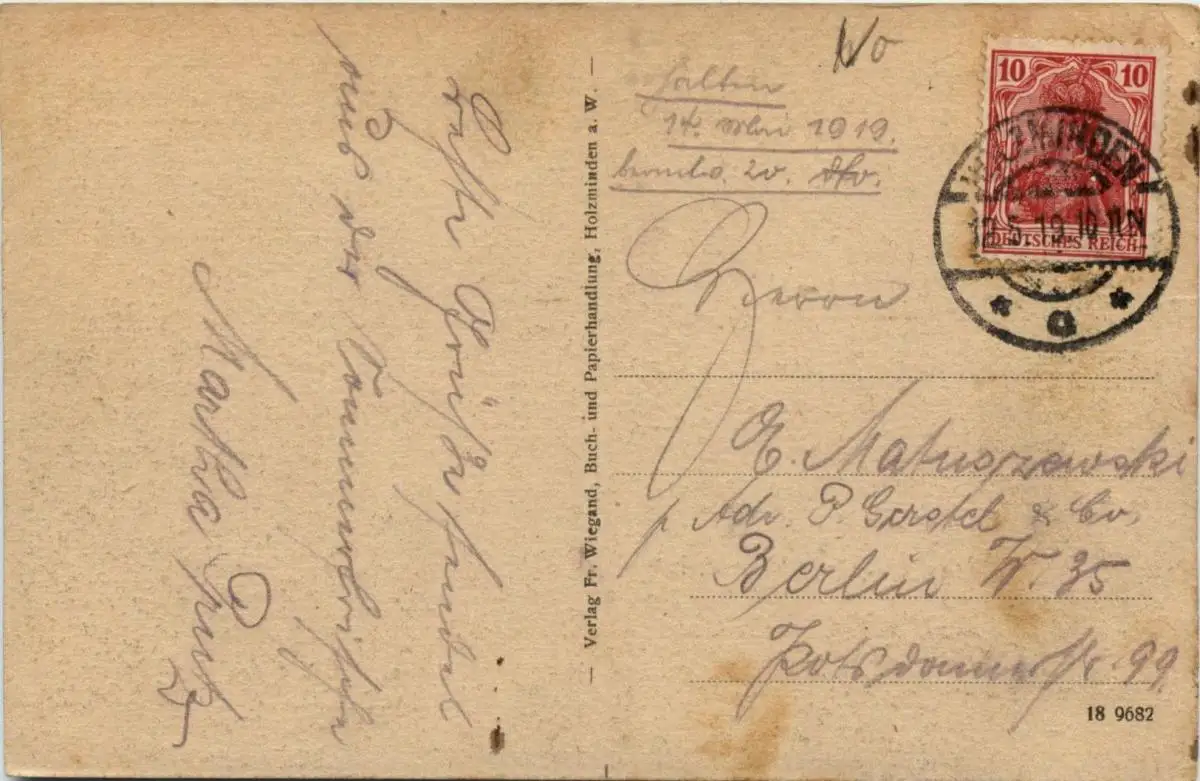 Beste Grüße sendet
aus der Sommerfrische
Martha
— Verlag Fr. Wiegand, Buch- und Papierhandlung, Holzminden a. W. —
No
erhalten
14. Mai 1919.
10 10
DEUTSCHES REICH
HOLZMINDEN
12.5.19.10-11 N
* a *
Herrn
E. Matuszewski
p. Adr. P. Gerstel & Co.
Berlin W. 35
Potsdamerstr. 99
18 9682